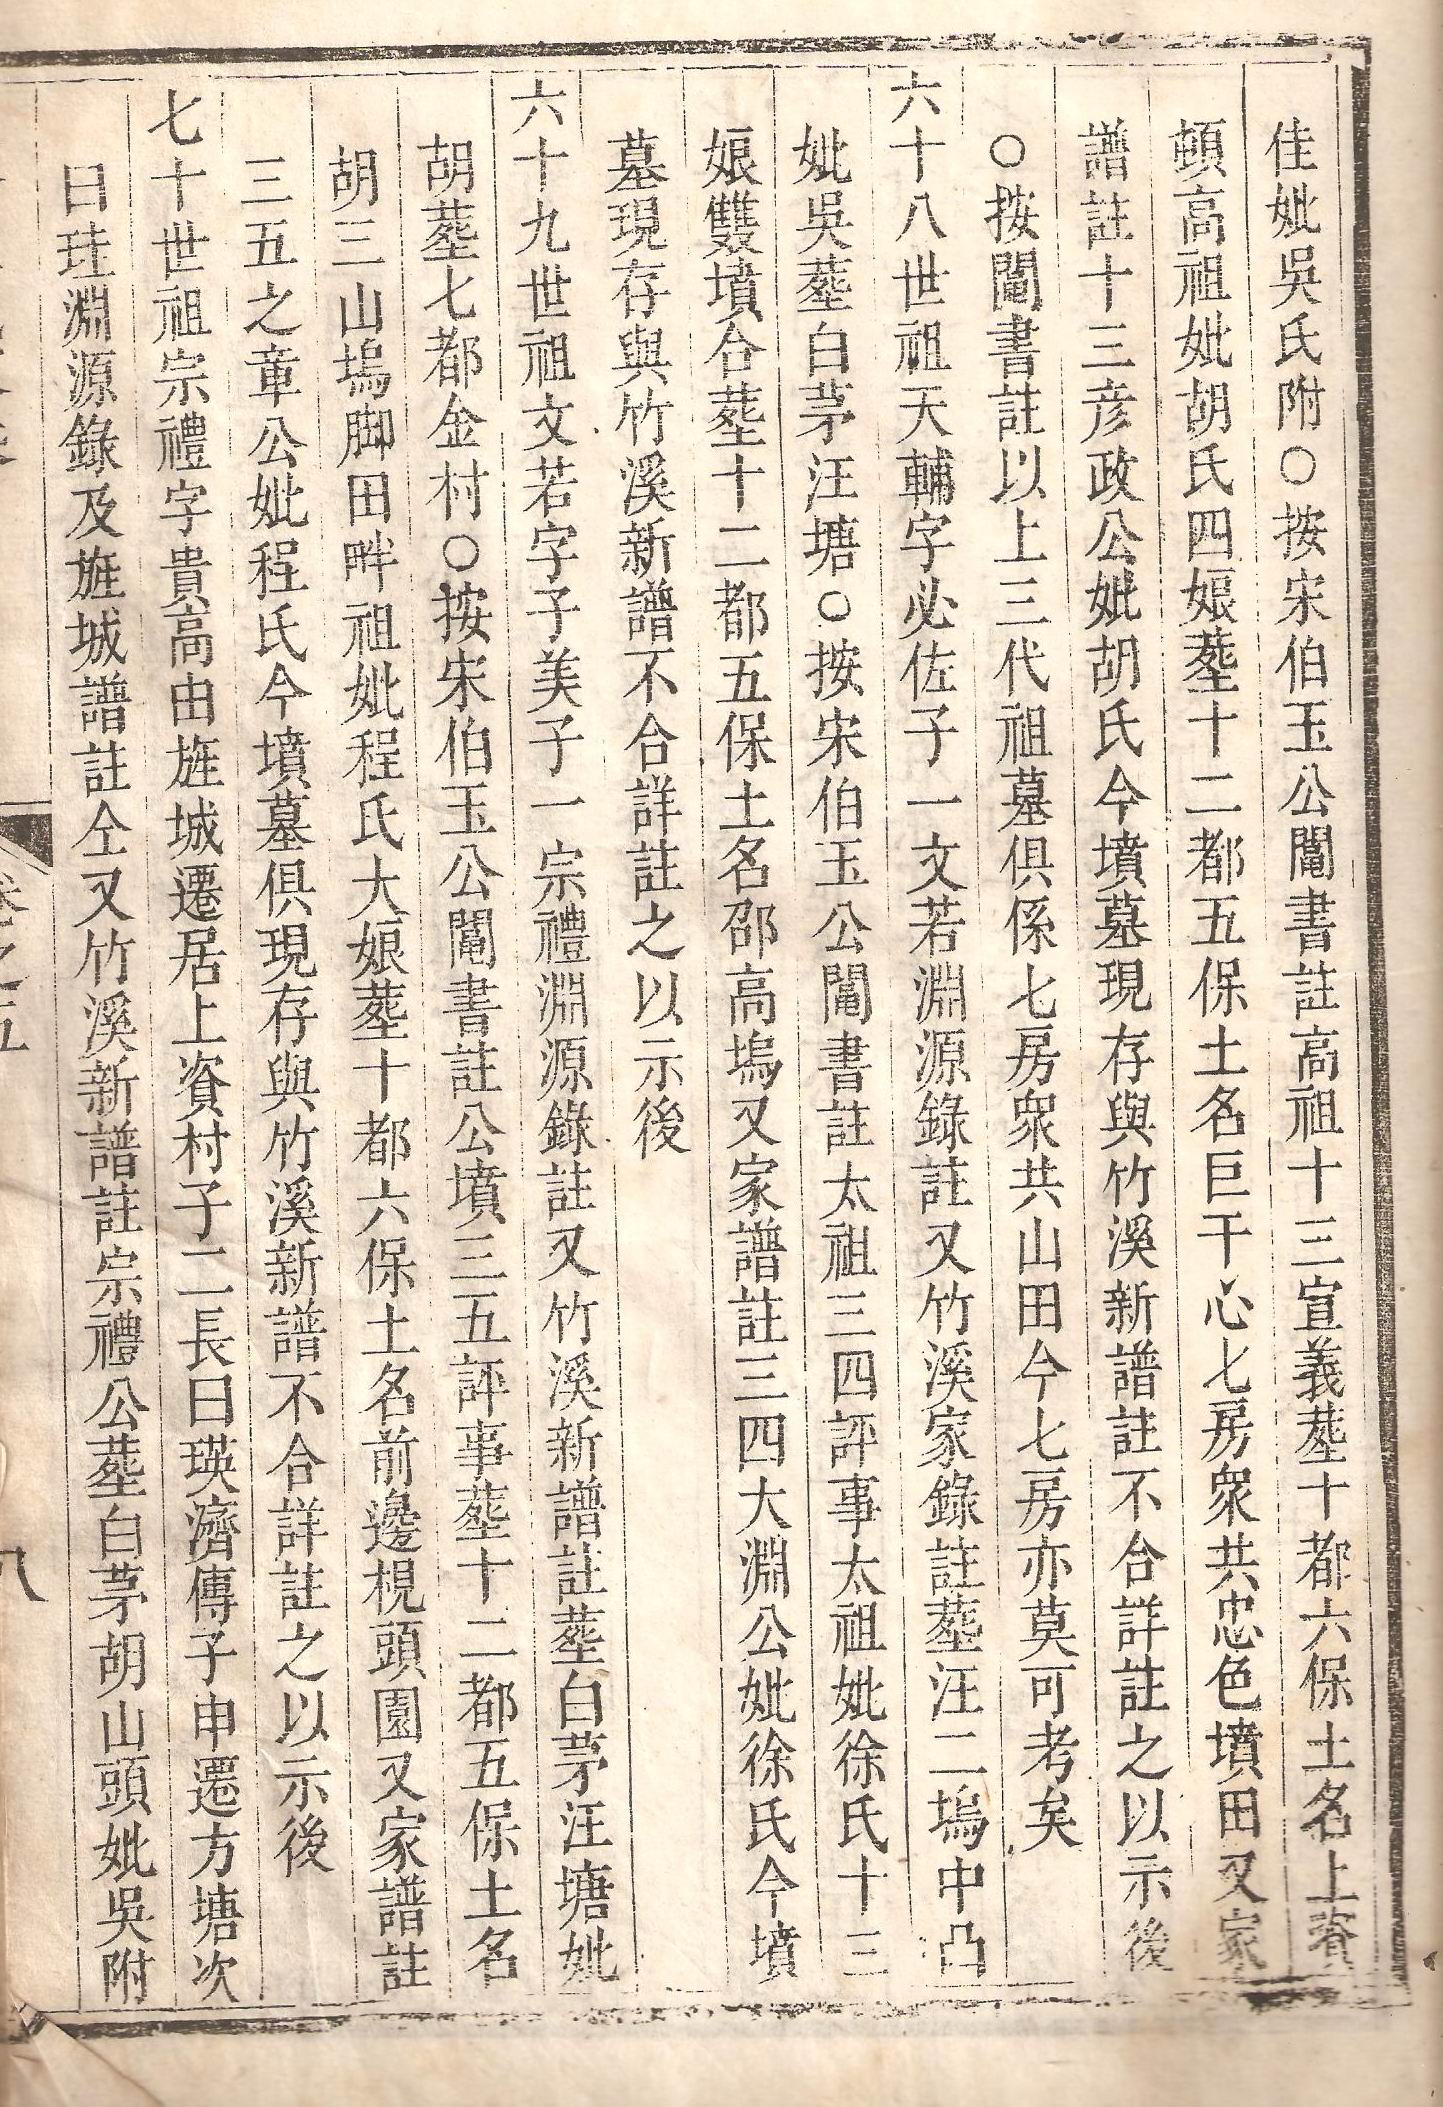 佳妣吳氏附〇按宋伯玉公鬮書註高祖十三宣義塟十都六保土名上資
頓高祖妣胡氏四娘塟十二都五保土名巨干心七房衆共忠色墳田又家
譜註十三彦政公妣胡氏今墳墓現存與竹溪新譜註不合詳註之以示後
〇按鬮書註以上三代祖墓俱係七房衆共山田今七房亦莫可考矣
六十八世祖天輔字必佐子一文若淵源錄註又竹溪家錄註塟汪二塢中凸
妣吳塟白茅汪塘〇按宋伯玉公鬮書註太祖三四評事太祖妣徐氏十三
娘雙墳合塟十二都五保土名邵高塢又家譜註三四大淵公妣徐氏今墳
墓現存與竹溪新譜不合詳註之以示後
六十九世祖文若字子美子一宗禮淵源錄註又竹溪新譜註塟白茅汪塘妣
胡塟七都金村〇按宋伯玉公鬮書註公墳三五評事塟十二都五保土名
胡三山塢脚田畔祖妣程氏大娘塟十都六保土名前邊梘頭園又家譜註
三五之章公妣程氏今墳墓俱現存與竹溪新譜不合詳註之以示後
七十世祖宗禮字貴高由旌城遷居上資村子二長曰瑛濟傳子申遷方塘次
曰珪淵源錄及旌城譜註仝又竹溪新譜註宗禮公塟白茅胡山頭妣吳附
卷之五
八